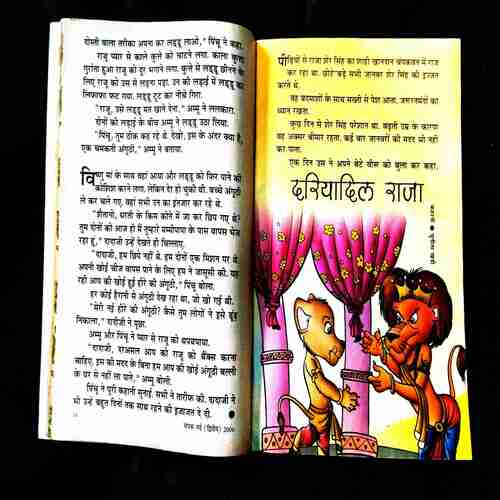 दोस्ती वाला तरीका अपना कर लड्डू लाओ," पिंचू ने कहा.
राजू प्यार से काले कुत्ते को चाटने लगा. काला कुत्ता
गुर्राता हुआ राजू को दूर भगाने लगा. कुत्ते से लड्डू छीनने के
लिए राजू को उस से लड़ना पड़ा. उन की लड़ाई में लड्डू का
लिफाफा फट गया. लड्डू टूट कर नीचे गिरा.
"राजू, उसे लड्डू मत खाने देना," अम्मू ने ललकारा.
दोनों की लड़ाई के बीच अम्मू ने लड्डू उठा लिया.
"पिंचू, तुम ठीक कह रहे थे. देखो, इस के अंदर क्या है,
एक चमकती अंगूठी," अम्मू ने बताया.
विष्णु मां के साथ वहां आया और लड्डू को फिर पाने की
कोशिश करने लगा, लेकिन देर हो चुकी थी. बच्चे अंगूठी
ले कर चले गए, वहां सभी उन का इंतजार कर रहे थे.
"शैतानो, धरती के किस कोने में जा कर छिप गए थे?
तुम दोनों को आज ही मैं तुम्हारे मम्मीपापा के पास वापस भेज
रहा हूं," दादाजी उन्हें देखते ही चिल्लाए.
"दादाजी, हम छिपे नहीं थे. हम दोनों एक मिशन पर थे.
अपनी खोई चीज वापस पाने के लिए हम ने जासूसी की. यह
रही आप की खोई हुई हीरे की अंगूठी," पिंचू बोला.
हर कोई हैरानी से अंगूठी देख रहा था, जो खो गई थी.
"मेरी नई हीरे की अंगूठी? कैसे तुम लोगों ने इसे ढूंढ़
निकाला," दादाजी ने पूछा.
अम्मू और पिंचू ने प्यार से राजू को थपथपाया.
"दादाजी, दरअसल आप को राजू को थैंक्स करना
चाहिए. इस की मदद के बिना हम आप की खोई अंगूठी बल्ली
के घर से नहीं ला पाते," अम्मू बोली.
पिंचू ने पूरी कहानी सुनाई. सभी ने तारीफ की. दादाजी ने
भी उन्हें बहुत दिनों तक साथ रहने की इजाजत दे दी.
चंपक मई (द्वितीय) 2009
पीढ़ियों से राजा शेर सिंह का शाही खानदान चंपकवन में राज
कर रहा था. छोटेबड़े सभी जानवर शेर सिंह की इज्जत
करते थे.
वह बदमाशों के साथ सख्ती से पेश आता. जरूरतमंदों का
ध्यान रखता.
कुछ दिन से शेर सिंह परेशान था. बढ़ती उम्र के कारण
वह अक्सर बीमार रहता. कई बार जानवरों की मदद भी नहीं
कर पाता.
एक दिन उस ने अपने बेटे वीरू को बुला कर कहा,
दरियादिल राजा
कहानी